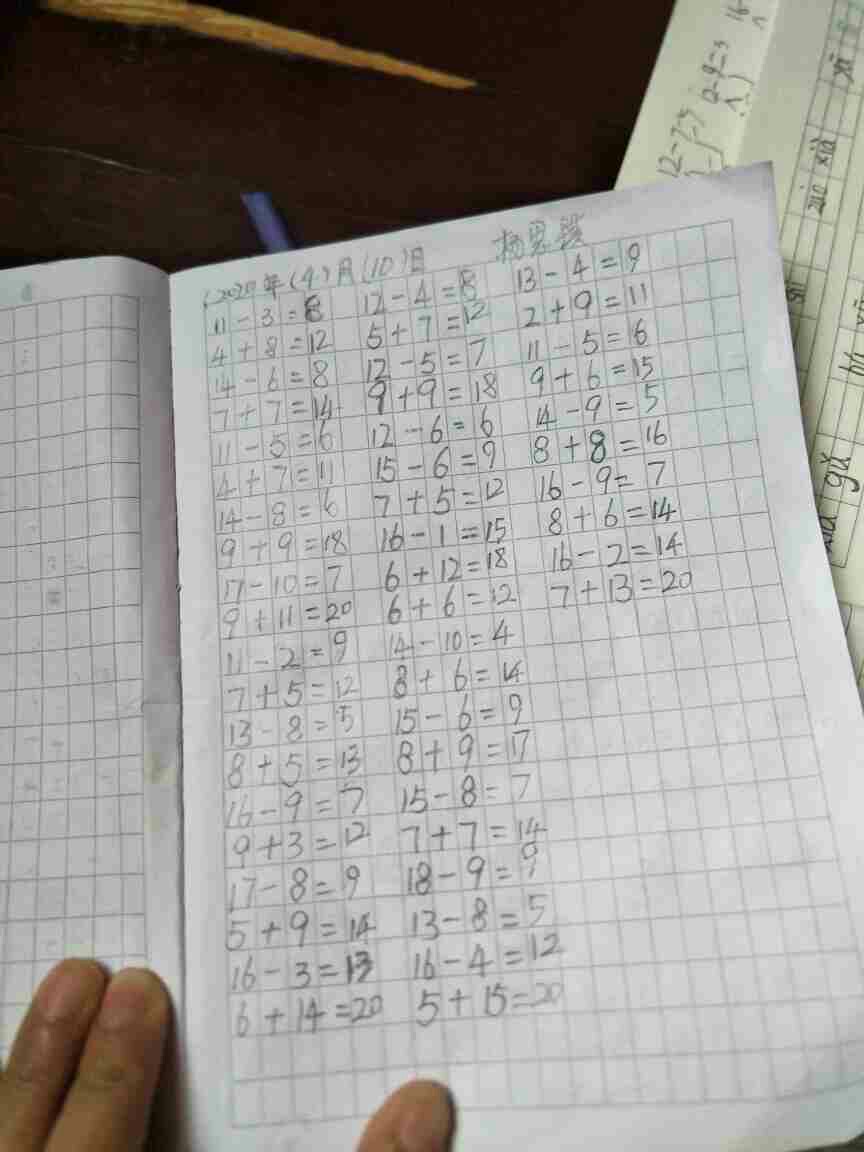 (2020年(4)月(10)日
11-3=8
4+8=12
14-6=8
7+7=14
11-5=6
4+7=11
14-8=6
9+9=18
17-10=7
9+11=20
11-2=9
7+5=12
13-8=5
8+5=13
16-9=7
9+3=12
17-8=9
5+9=14
16-3=13
6+14=20
12-4=8
5+7=12
12-5=7
9+9=18
12-6=6
15-6=9
7+5=12
16-1=15
6+12=18
6+6=12
14-10=4
8+6=14
15-6=9
8+9=17
15-8=7
7+7=14
18-9=9
13-8=5
16-4=12
5+15=20
13-4=9
2+9=11
11-5=6
9+6=15
14-9=5
8+8=16
16-9=7
8+6=14
16-2=14
7+13=20
12-7=5
12-9=3
xià